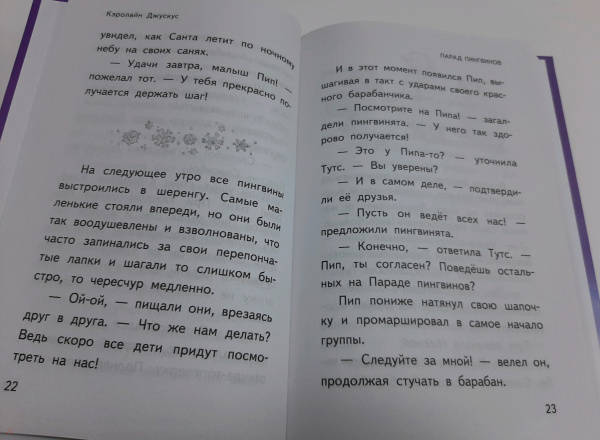 Кэролайн Джускус
увидел, как Санта летит по ночному
небу на своих санях.
— Удачи завтра, малыш Пип! —
пожелал тот. — У тебя прекрасно по-
лучается держать шаг!
На следующее утро все пингвины
выстроились в шеренгу. Самые ма-
ленькие стояли впереди, но они были
так воодушевлены и взволнованы, что
часто запинались за свои перепонча-
тые лапки и шагали то слишком бы-
стро, то чересчур медленно.
— Ой-ой, — пищали они, врезаясь
друг в друга. — Что же нам делать?
Ведь скоро все дети придут посмо-
треть на нас!
22
ПАРАД ПИНГВИНОВ
И в этот момент появился Пип, вы-
шагивая в такт с ударами своего крас-
ного барабанчика.
— Посмотрите на Пипа! — загал-
дели пингвинята. — У него так здо-
рово получается!
— Это у Пипа-то? — уточнила
Тутс. — Вы уверены?
— И в самом деле, — подтверди-
ли её друзья.
— Пусть он ведёт всех нас! —
предложили пингвинята.
— Конечно, — ответила Тутс. —
Пип, ты согласен? Поведёшь осталь-
ных на Параде пингвинов?
Пип пониже натянул свою шапоч-
ку и промаршировал в самое начало
группы.
— Следуйте за мной! — велел он,
продолжая стучать в барабан.
23